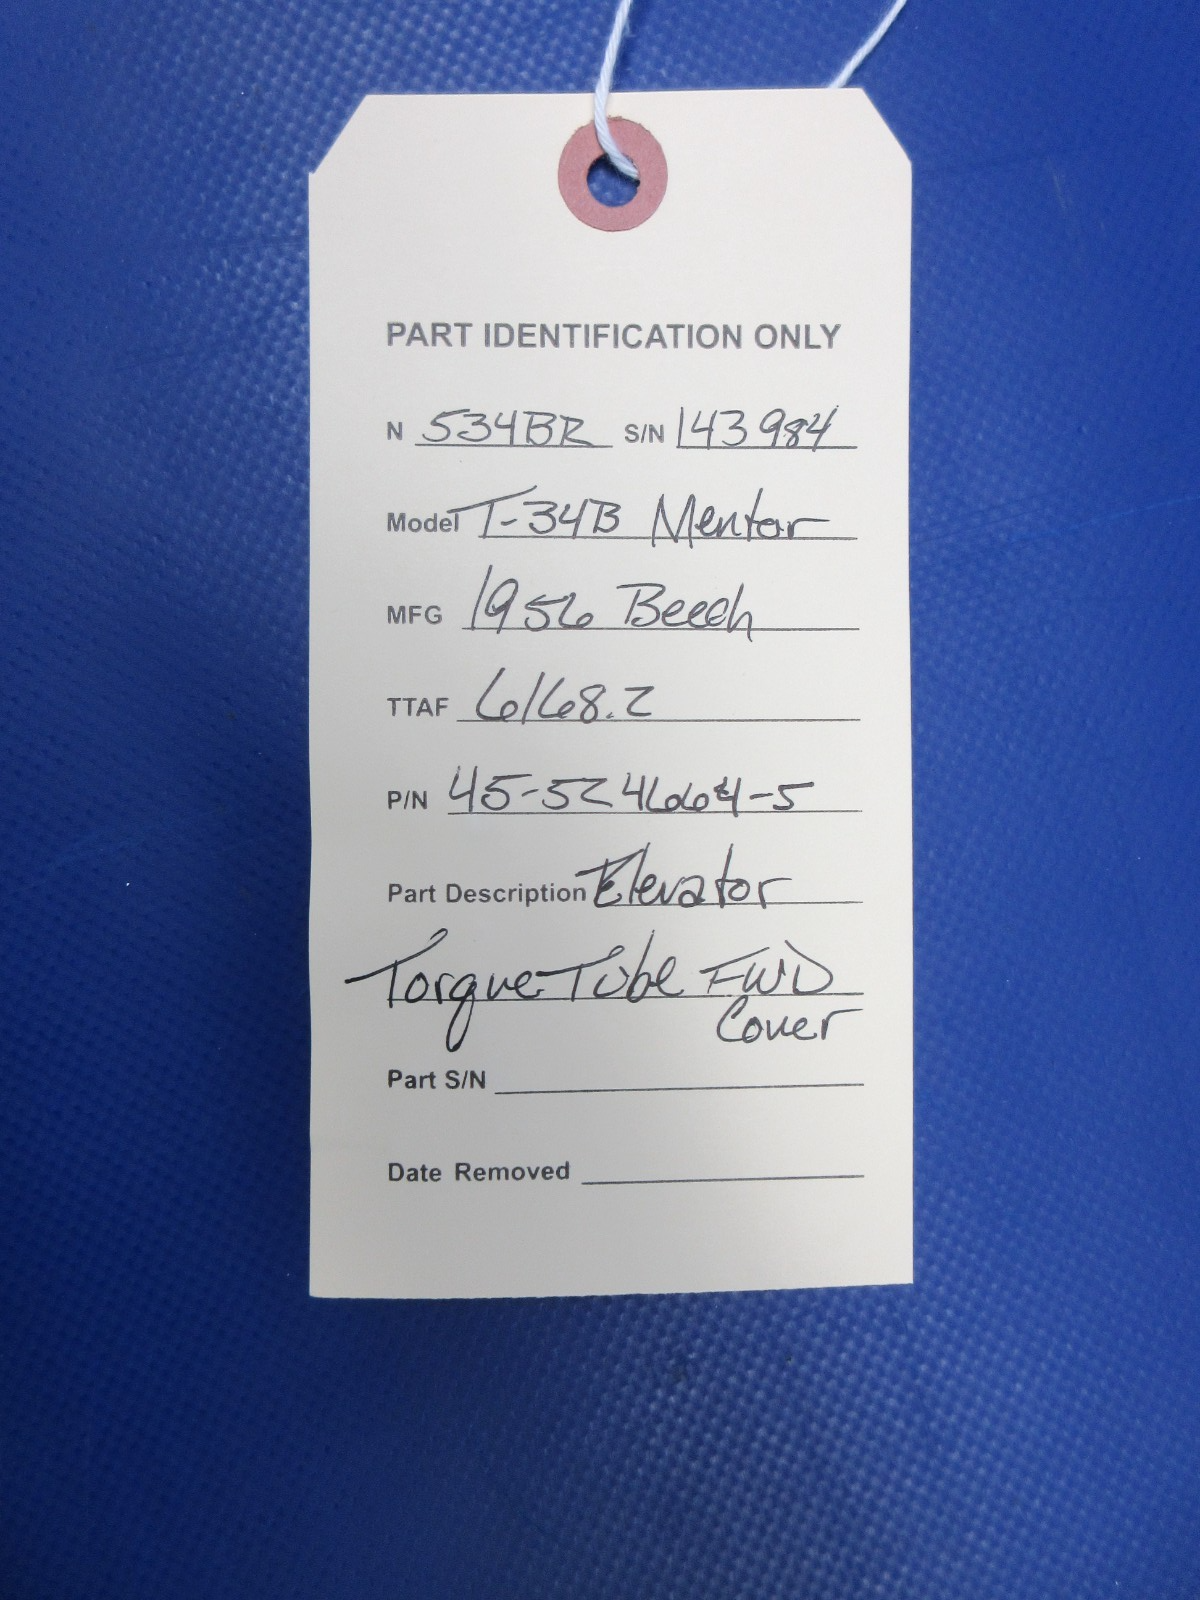 PART IDENTIFICATION ONLY
N 534BR S/N 143984
Model T-34B Mentor
MFG 1956 Beech
TTAF 6168.2
P/N 45-524664-5
Part Description Elevator
Torque Tube FWD
Cover
Part S/N
Date Removed